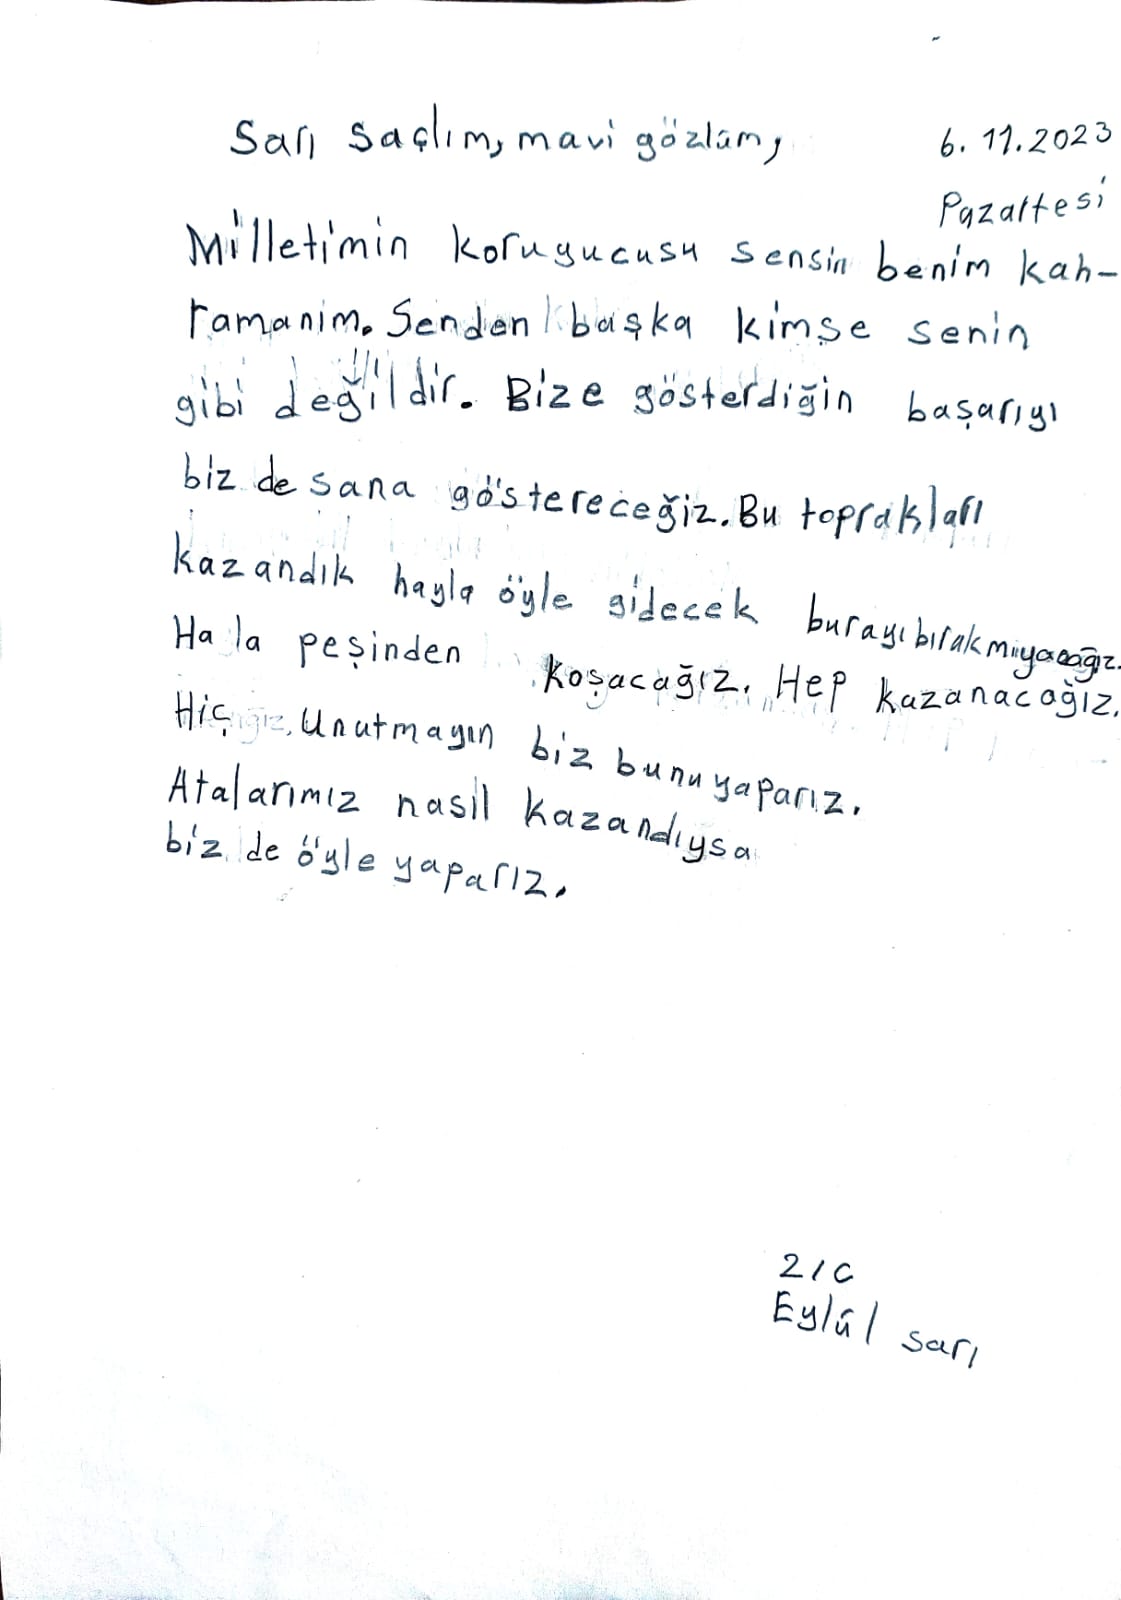 Sarı saçlım, mavi gözlüm,
6.11.2023
Pazartesi
Milletimin koruyucusu sensin benim kah-
ramanim. Senden başka kimse senin
gibi değildir. Bize gösterdiğin başarıyı
biz de sana göstereceğiz. Bu toprakları
kazandık hayla öyle gidecek burayı bırakmıyacağız.
Hala peşinden koşacağız. Hep kazanacağız.
Hiç Unutmayın biz bunu yaparız.
Atalarımız nasıl kazandıysa
biz de öyle yaparız.
2/C
Eylül sarı